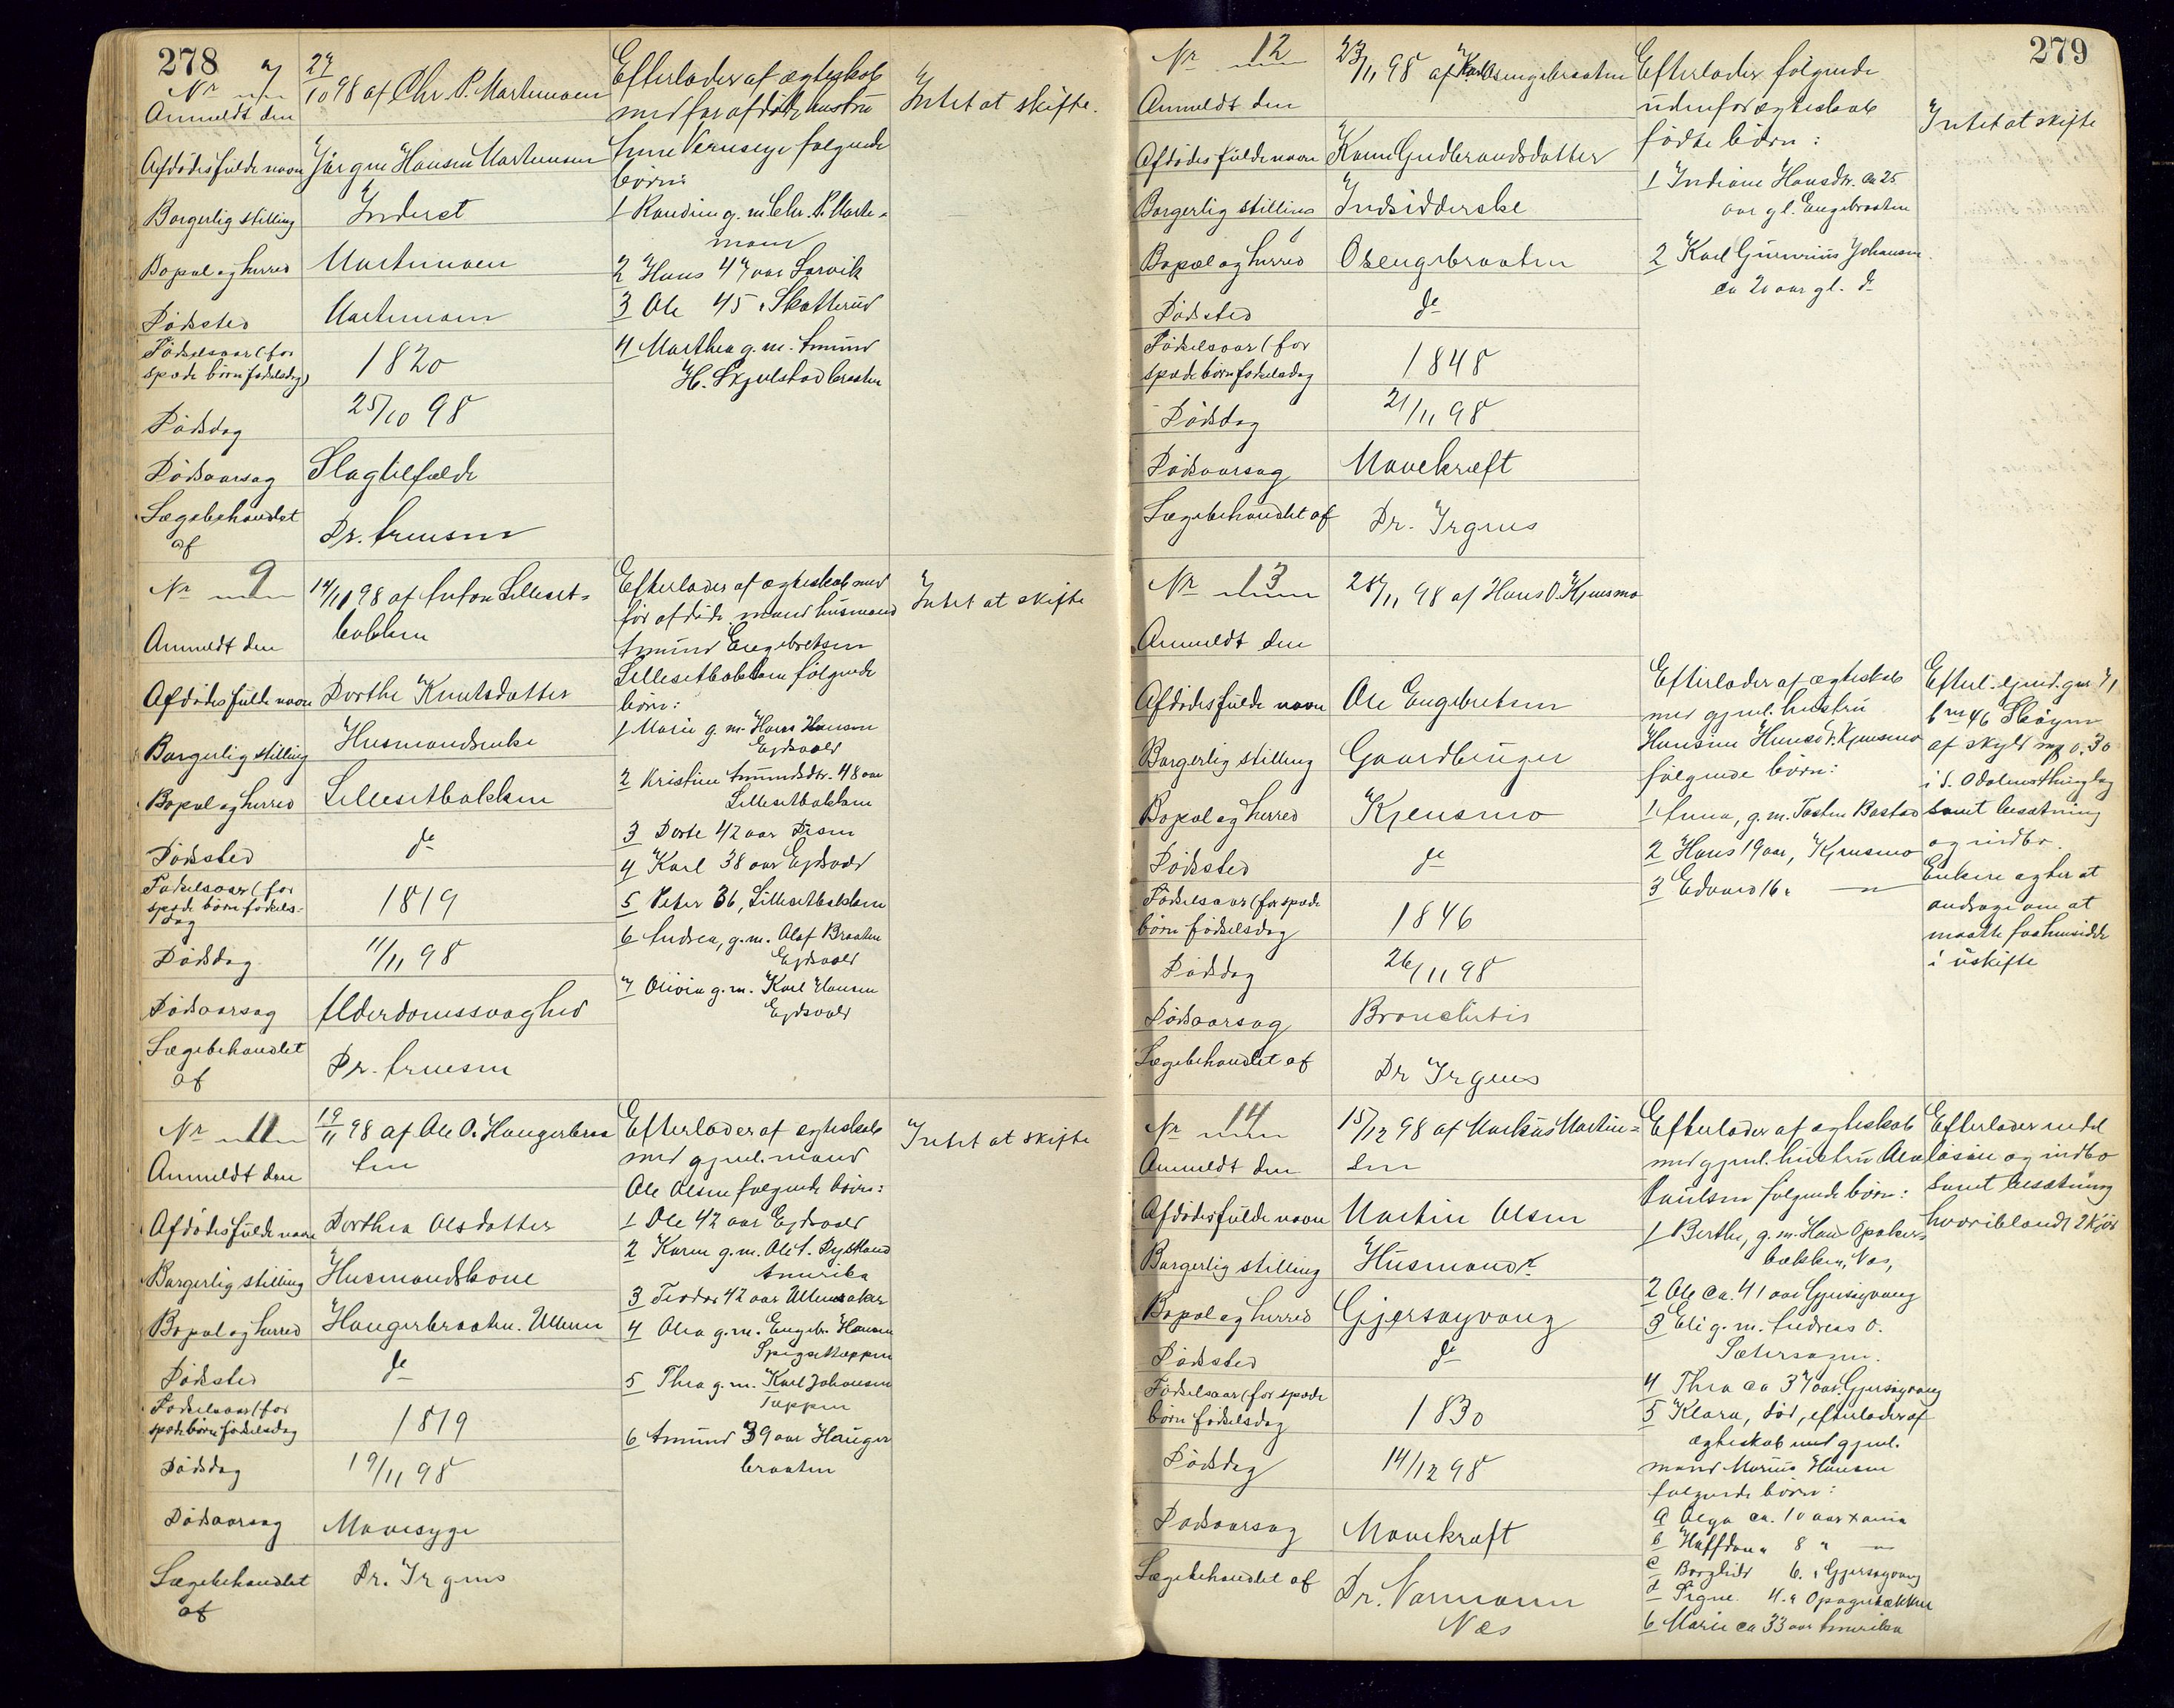 278
Nr 7
27/10 98 af Chr. P. Martemoen
Anmeldt den
Afdødes fulde navn Jørgen Hansen Martemoen
Borgerlig stilling Inderst
Bopæl og herred Martemoen
Dødssted Martemoen
Fødselsaar (for
spæde børn fødselsdag) 1820
Dødsdag 25/10 98
Dødsaarsag Slagtilfælde
Lægebehandlet
af Dr. Arnesen
Efterlader af ægteskab
med før afdøde hustru
følgende
børn:
1 Randine g. m. Chr. P. Marte-
moen
2 Hans 47 aar Larvik
3 Ole 45 " Skotterud
4 Marthea g. m. Amund
H. Skjelstadbraaten
Intet at skifte.
Nr 9
14/11 98 af Anton Lilleset-
bakken
Anmeldt den
Afdødes fulde navn Dorthe Knutsdatter
Borgerlig stilling Husmandsenke
Bopæl og herred Lillesetbakken
Dødssted do
Fødselsaar (for
spæde børn fødsels-
dag 1819
Dødsdag 11/11 98
Dødsaarsag Alderdomssvaghed
Lægebehandlet
af Dr. Arnesen
Efterlader af ægteskab med
før afdøde mand husmand
Amund Engebretsen
Lillesetbakken følgende
børn:
1 Marie g. m. Hans Hansen
Eidsvold
2 Kristine Amundsdtr. 48 aar
Lillesetbakken
3 Dorte 42 aar
4 Karl 38 aar Eidsvold
5 Peter 36, Lillesetbakken
6 Andrea, g. m. Olaf Braaten
Eidsvold
7 Olivia g. m. Karl Hansen
Eidsvold
Intet at skifte
Nr 11
19/11 98 af Ole O. Haugerbraa
ten
Anmeldt den
Afdødes fulde navn Dorthea Olsdatter
Borgerlig stilling Husmandskone
Bopæl og herred Haugerbraaten. Ullern
Dødssted do
Fødselsaar (for
spæde børn fødselsdag 1819
Dødsdag 19/11 98
Dødsaarsag Mavesyge
Lægebehandlet
af Dr. Irgens
Efterlader af ægteskab
med gjenl. mand
Ole Olsen følgende børn:
1 Ole 42 aar Eidsvold
2 Karen g. m. Ole
Amerika
3 Teodor 42 aar Ullensaker
4 Olea g. m. Engebr. Hansen
5 Thea g. m. Karl Johansen
Tappen
6 Amund 39 aar Hauger
braaten
Intet at skifte
279
Nr 12
23/11 98 af Karl Osengebraaten
Anmeldt den
Afdødes fulde navn Karen Gudbrandsdatter
Borgerlig stilling Indsidderske
Bopæl og herred Osengebraaten
Dødssted do
Fødselsaar (for
spæde børn fødselsdag 1848
Dødsdag 21/11 98
Dødsaarsag Mavekræft
Lægebehandlet af Dr. Irgens
Efterlader følgende
udenfor ægteskab
fødte børn:
1 Indiane Hansdtr. ca 25
aar gl. Engebraaten
2 Karl Gunerius Johansen
ca 20 aar gl. do
Intet at skifte
Nr 13
28/11 98 af Hans O. Kjensmo
Anmeldt den
Afdødes fulde navn Ole Engebretsen
Borgerlig stilling Gaardbruger
Bopæl og herred Kjensmo
Dødssted do
Fødselsaar (for spæde
børn fødselsdag 1846
Dødsdag 26/11 98
Dødsaarsag Bronchitis
Lægebehandlet af Dr Irgens
Efterlader af ægteskab
med gjenl. hustru
Hansine Hansdtr. Kjensmo
følgende børn:
1 Anna, g. m. Torsten Bastad
2 Hans 19 aar, Kjensmo
3 Edvard 16 "
Efterl. eiend. gnr 71
bnr 46 Skøyen
af skyld mrk 0.30
i S. Odalens thinglag
samt besætning
og indbo.
Enken agter at
andrage om at
maatte forblive sidde
i uskifte
Nr 14
15/12 98 af Markus Martin-
sen
Anmeldt den
Afdødes fulde navn Martin Olsen
Borgerlig stilling Husmand
Bopæl og herred Gjersøyvang
Dødssted do
Fødselsaar (for spæde
børn fødselsdag 1830
Dødsdag 14/12 98
Dødsaarsag Mavekræft
Lægebehandlet af Dr. Normann
Næs
Efterlader af ægteskab
med gjenl. hustru Olea
Paulsen følgende børn:
1 Berthe, g. m. Hans Opaker-
bækken, Næs,
2 Ole ca. 41 aar Gjersøyvang
3 Eli g. m. Andreas O.
Sætersagen.
4 Thea ca 37 aar Gjersøyvang
5 Klara, død, efterlader af
ægteskab med gjenl.
mand Marius Hansen
følgende børn:
a Olga ca. 10 aar Xania
b Haffdan " 8 "
c Borghild 6. " Gjersøyvang
d Signe 4. " Opagerbækken
6 Marie ca 33 aar Amerika
Efterlader endel
løsøre og indbo
samt besætning
hvoriblandt 2 kjør